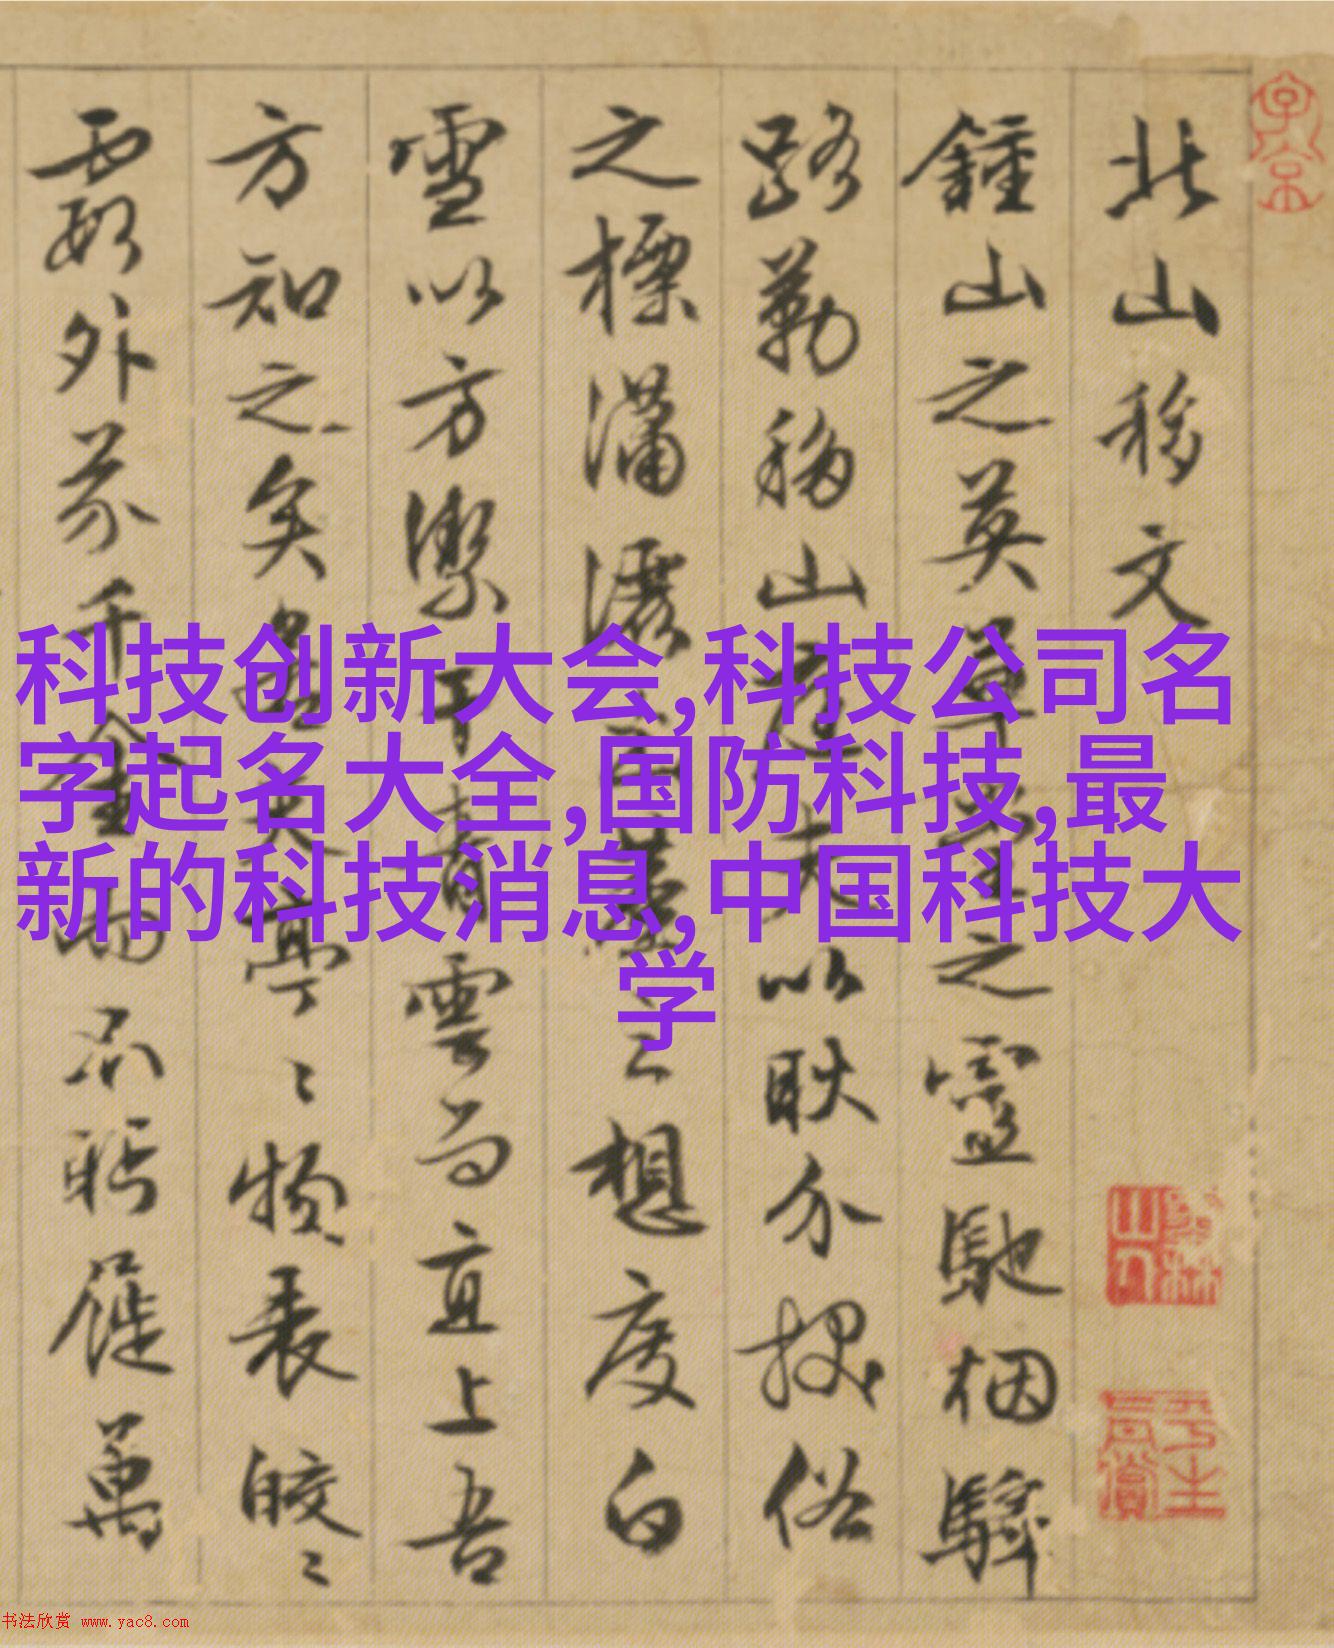 北山移文
鍾山之英草堂之靈馳烟驛
路勒移山庭夫以耿介拔俗
之標瀟灑出塵之想度白
雪以方潔干青雲而直上吾
方知之矣若其亭亭物表皎皎
霞外芥千金而不眄屣萬
科技创新大会,科技公司名
字起名大全,国防科技,最
新的科技消息,中国科技大
学
书法欣赏 www.yac8.com